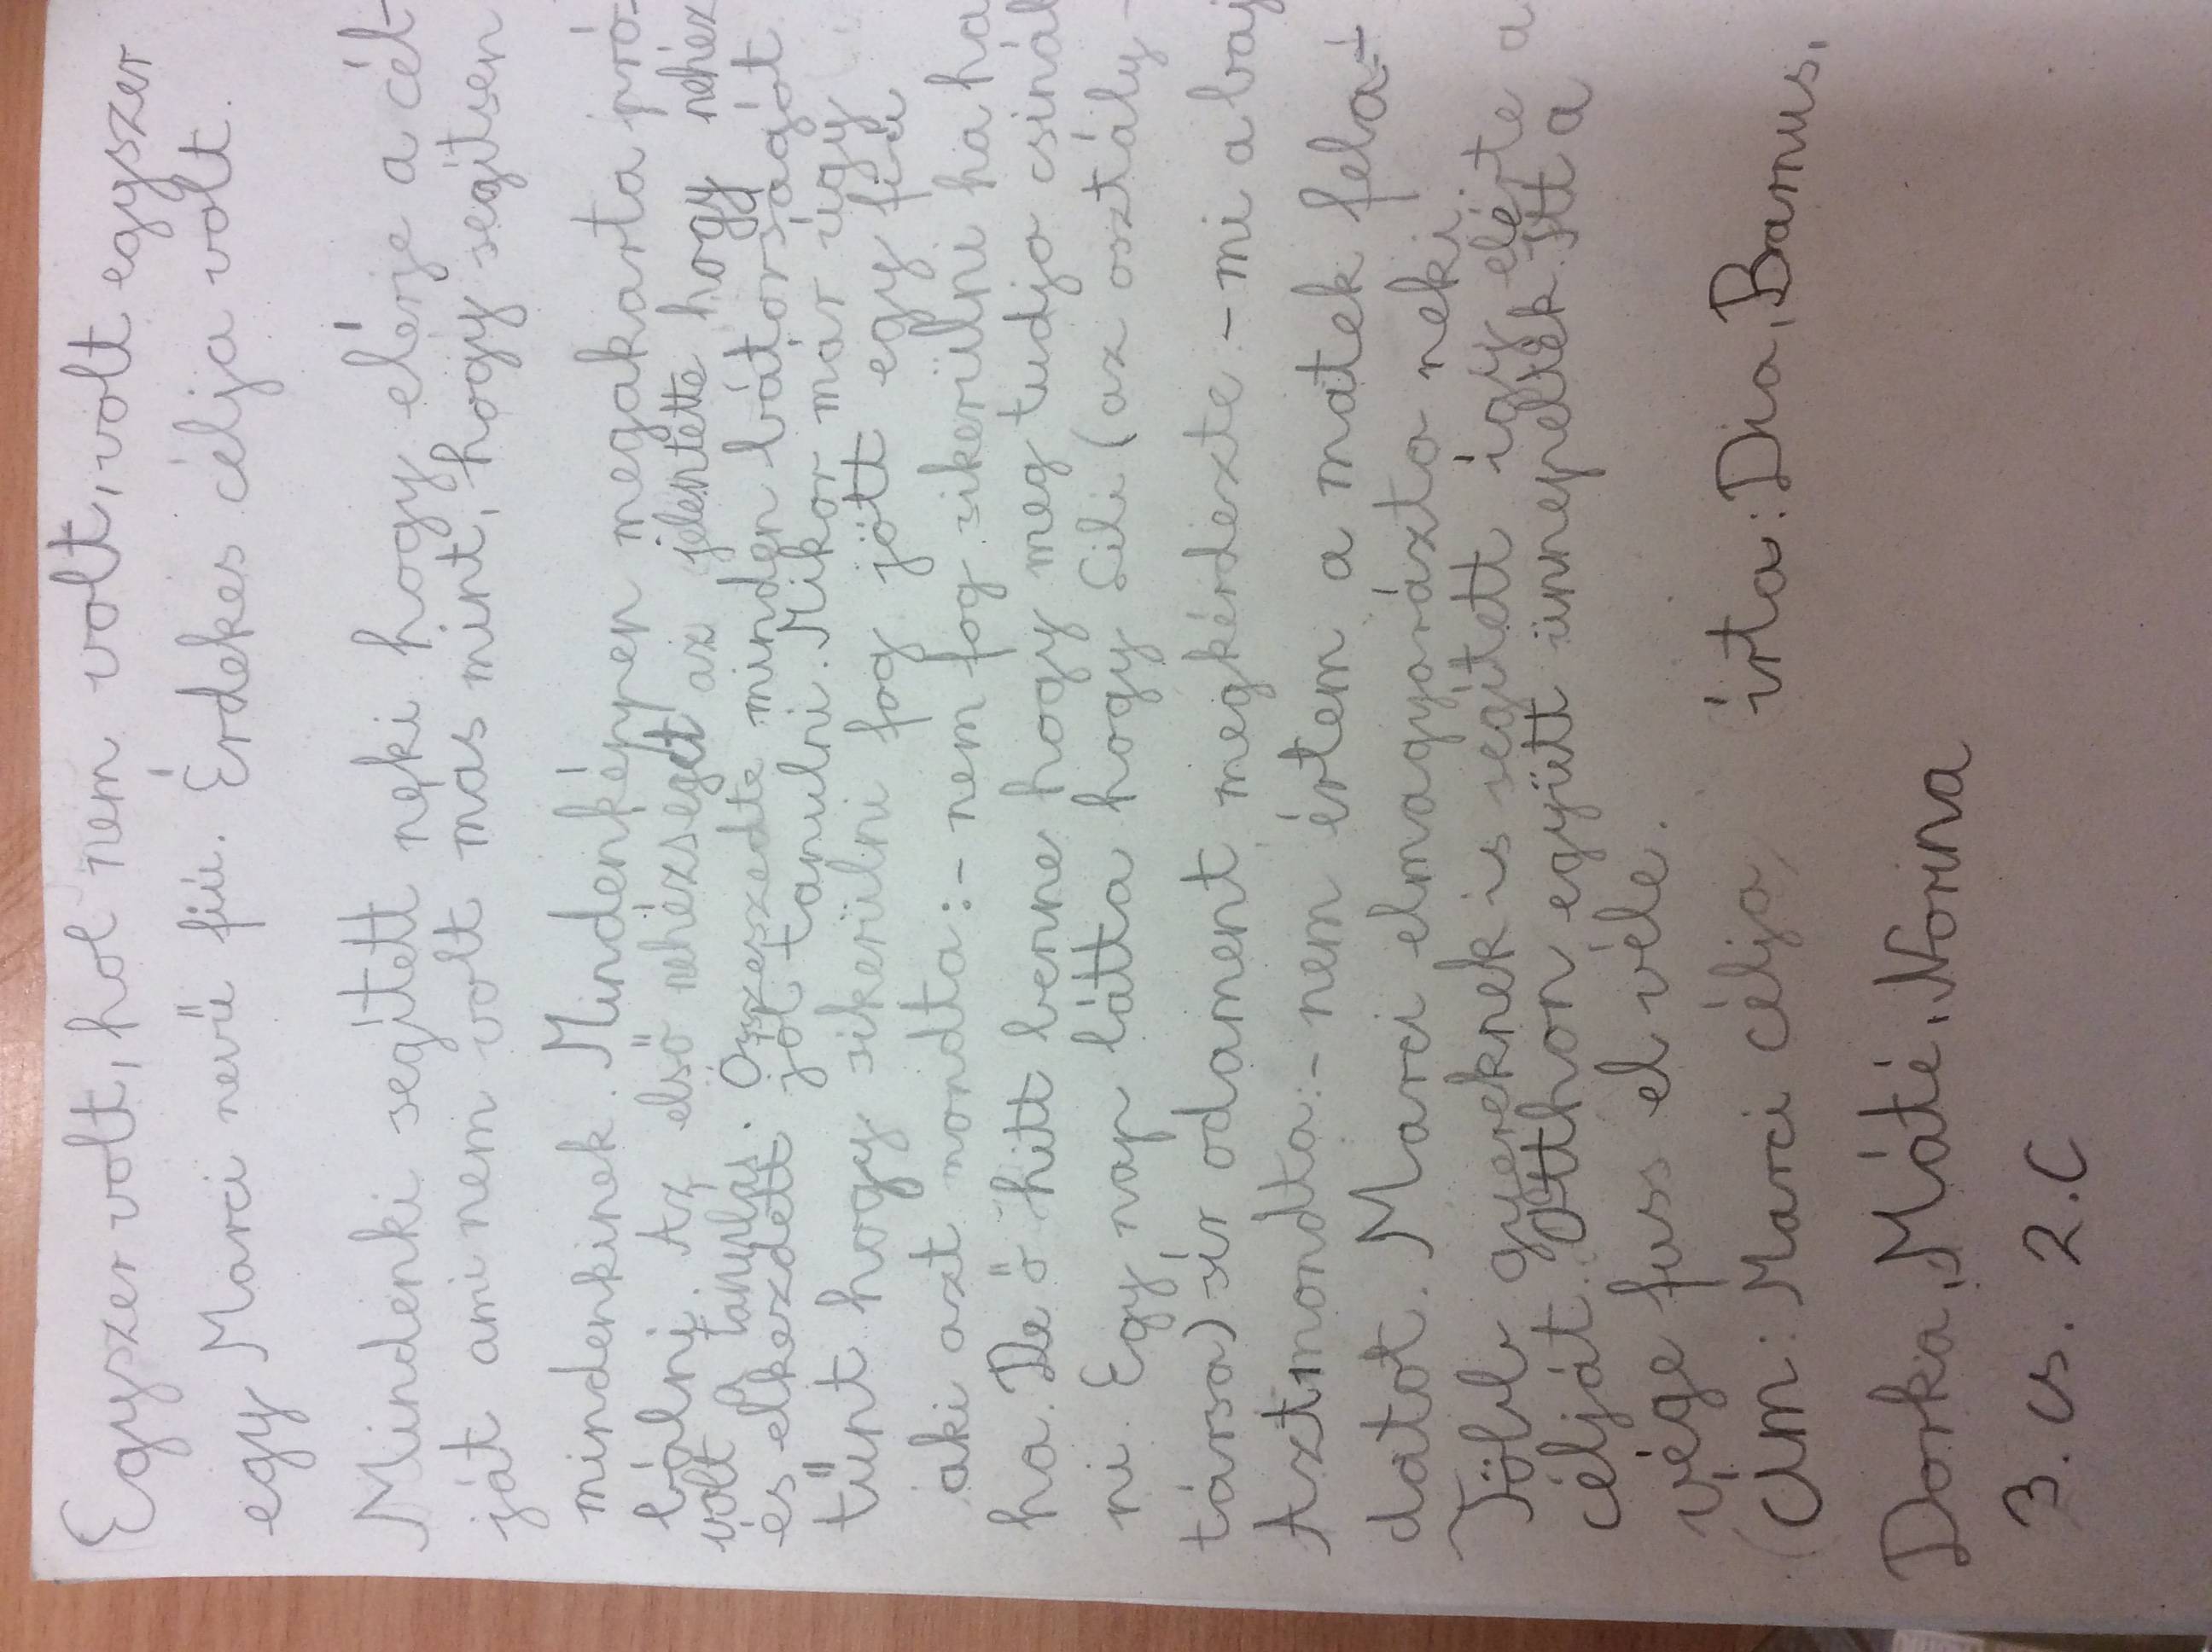 Egyszer volt, hol nem volt, volt egyszer
egy Marci nevű fiú. Érdekes célja volt.
Mindenki segített neki hogy elérje a cél-
ját ami nem volt más mint, hogy segítsen
mindenkinek. Mindenképpen megakarta pró-
bálni. Az első nehézséget az jelentette hogy nehéz
volt tanulás. Összeszedte minden bátorságát
és elkezdett jól tanulni. Mikor már úgy
tűnt hogy sikerülni fog jött egy fiú
aki azt mondta:- nem fog sikerülni ha ha
ha. De ő hitt benne hogy meg tudja csinál
ni. Egy nap látta hogy Lili (az osztály-
társa) sír odament megkérdezte - mi a baj
Aztmondta:- nem értem a matek fela-
datot. Marci elmagyarázta neki.
Több gyereknek is segített így elérte a
célját. Otthon együtt ünnepeltek. Itt a
vége fuss el véle.
(Cím: Marci célja, írta: Dia, Banus,
Dorka, Máté, Norina
3. cs. 2.C